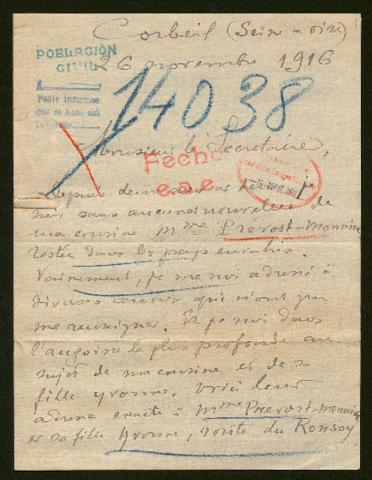 Corbeil (Seine-et-Oise)
26 novembre 1916
POBLACIÓN
CIVIL
14038
Pedir informes
Monsieur le Secrétaire,
Fecho
e.a.e.
Depuis deux ans je
suis sans aucunes nouvelles de
ma cousine Mme Prevost-Monnier
restée dans les pays envahis.
Vainement, je me suis adressé à
diverses œuvres qui n'ont pu
me renseigner. Et je suis dans
l'angoisse la plus profonde au
sujet de ma cousine et de sa
fille Yvonne. Voici leur
adresse exacte : Mme Prevost-Monnier
et sa fille Yvonne, route du Ronsoy,